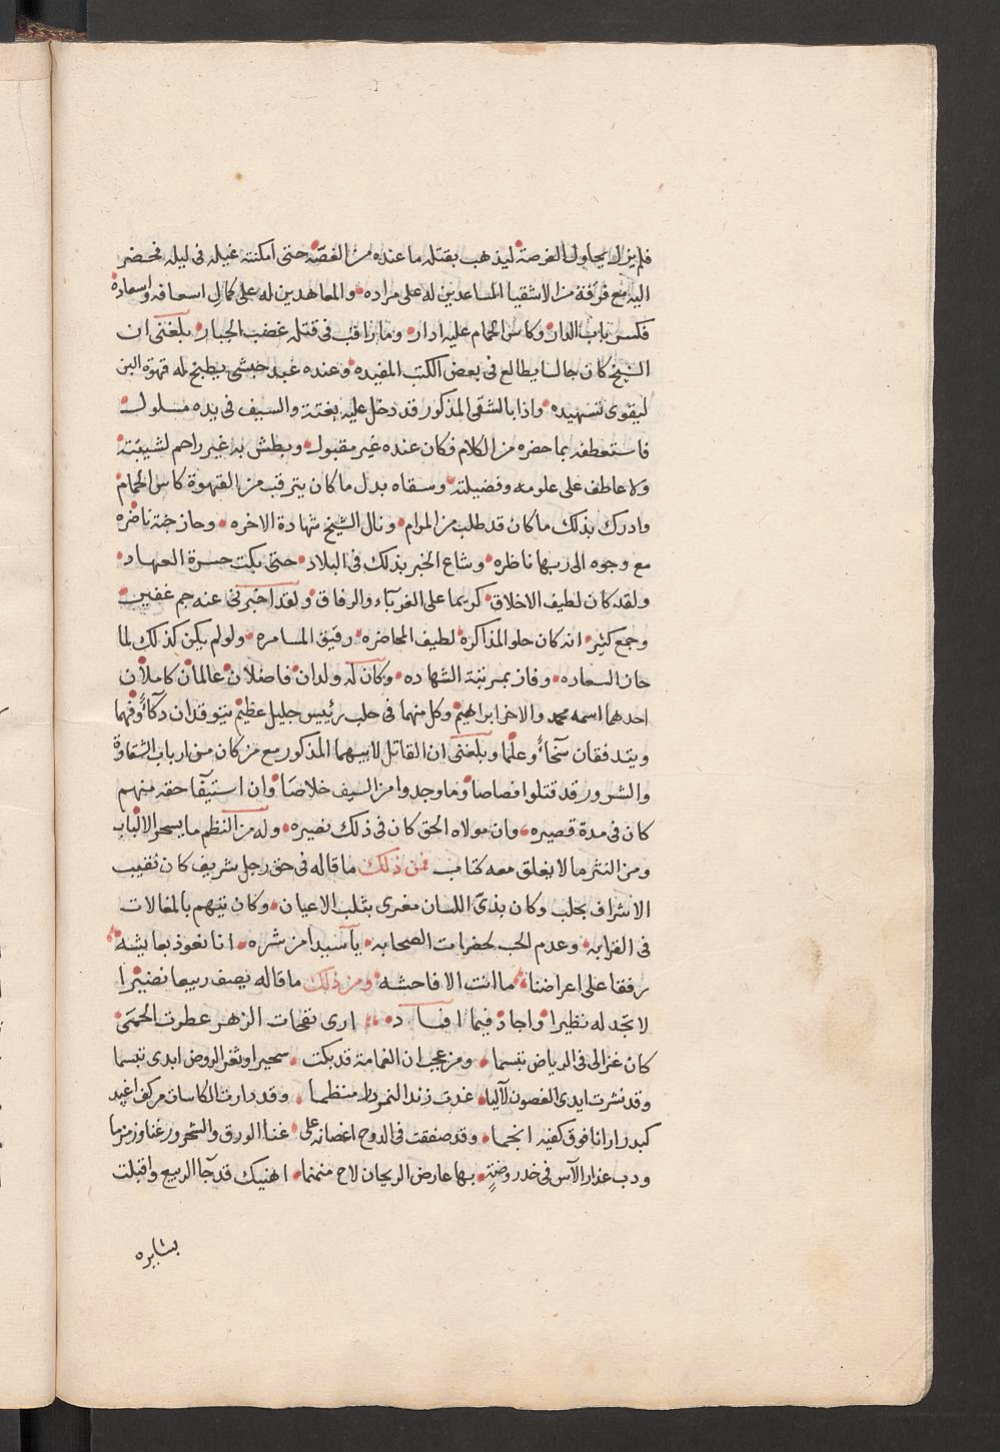 فلم يزل يحاول الفرصة ليذهب بقتله ما عنده من الغصّة حتى امكنته غيله فى ليله فحضر
اليه مع فرقة من الاشقيا المساعدين له على مراده والمعاهدين له على كمال اسعافه واسعاده
فكسر باب الدار وكاس الحمام عليه ادار وما راقب فى قتله غضب الجبار بلغنى ان
الشيخ كان جالسا يطالع فى بعض الكتب المفيده وعنده عبد حبشى يطبخ له قهوة البن
ليقوى تسهيده واذا بالشقى المذكور قد دخل عليه بغتة والسيف فى يده مسلول
فاستعطفه بما حضره من الكلام فكان عنده غير مقبول وبطش به غير راحم لشيبته
ولا عاطف على علومه وفضيلته وسقاه بدل ما كان يترقب من القهوة كاس الحمام
وادرك بذلك ما كان قد طلب من المرام ونال الشيخ شهادة الاخره وحاز جنة ناضره
مع وجوه الى ربها ناظره وشاع الخبر بذلك فى البلاد حتى بكت حسرة العهاد
ولقد كان لطيف الاخلاق كريما على الغربآء والرفاق ولقد اخبرنى عنه جم غفير
وجمع كثير انه كان حلو المذاكره لطيف المحاضره رقيق المسامره ولو لم يكن كذلك لما
حاز السعاده وفاز بمرتبة الشهاده وكان له ولدان فاضلان عالمان كاملان
احدهما اسمه محمد والاخر ابراهيم وكل منهما فى حلب رئيس جليل عظيم يتوقدان ذكآءً وفهما
ويتدفقان سخآءً وعلما وبلغنى ان القاتل لابيهما المذكور مع من كان من ارباب الشقاوة
والشرور قد قتلوا قصاصا وما وجدوا من السيف خلاصا وان استيفآ حقه منهم
كان فى مدة قصيره وان مولاه الحق كان فى ذلك نصيره وله من النظم ما يسحر الالباب
ومن النثر ما لا يغلق معه كتاب فمن ذلك ما قاله فى حق رجل شريف كان نقيب
الاشراف بحلب وكان بذىّ اللسان مغرى بثلب الاعيان وكان يتهم بالمغالات
فى القرابه وعدم الحب لحضرات الصحابه يا سيدا من شره انا نعوذ بعايشه
رفقا على اعراضنا ما انت الا فاحشه ومن ذلك ما قاله يصف ربيعا نضيرا
لا تجد له نظيرا واجاد فيما افاد ارى نفحات الزهر عطرت الحمى
كان غزالى فى الرياض تبسما ومن عجب ان الغمامة قد بكت سحيرا وثغر الروض ابدى تبسما
وقد نشرت ايدى الغصون لآليا غدت زند النهر منظما وقد دارت الكاسات من كف اغيد
كبدر ارانا فوق كفيه انجما وقد صفقت فى الدوح اغصانه على غنا الورق والشحرور غنا وزمزما
ودب عذار الآس فى خد روضةٍ بها عارض الريحان لاح منمنما اهنيك قد جآ الربيع واقبلت
بشايره